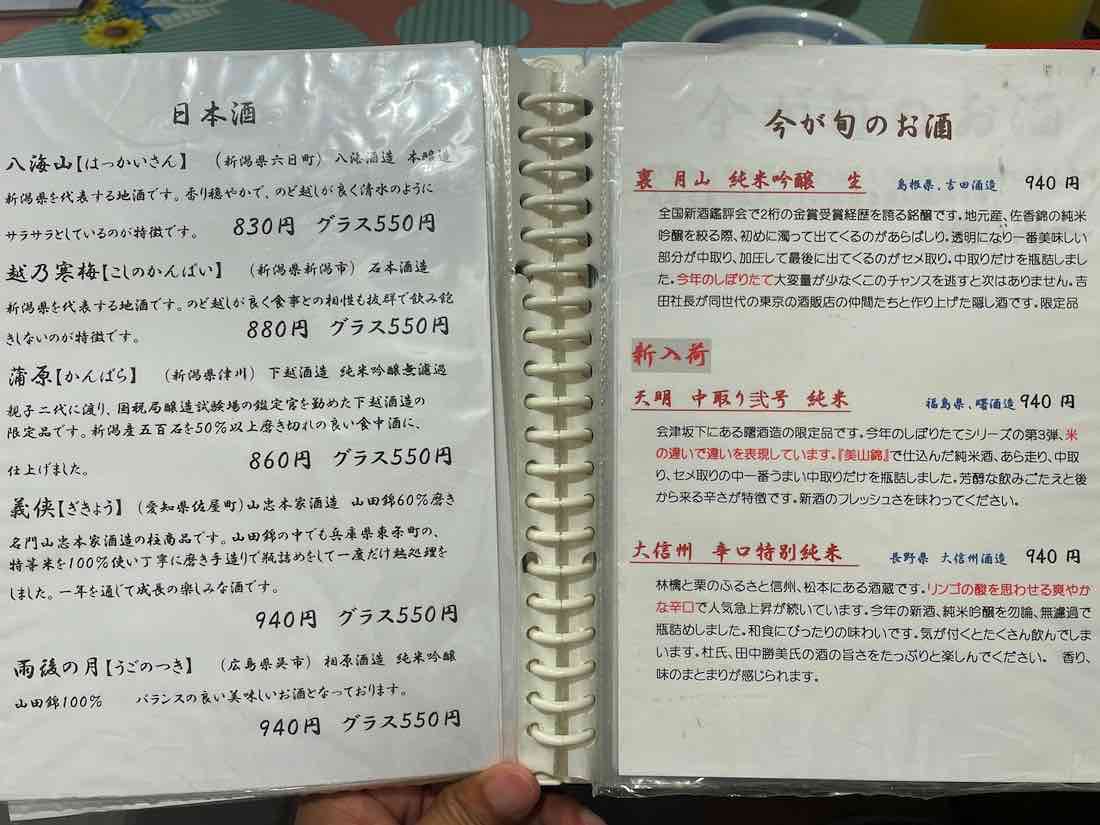 日本酒
八海山【はっかいさん】 (新潟県六日町) 八海酒造 本醸造
新潟県を代表する地酒です。香り穏やかで、のど越しが良く清水のように
サラサラとしているのが特徴です。 830円 グラス550円
越乃寒梅【こしのかんばい】 (新潟県新潟市) 石本酒造
新潟県を代表する地酒です。のど越しが良く食事との相性も抜群で飲み飽
きしないのが特徴です。 880円 グラス550円
蒲原【かんばら】 (新潟県津川) 下越酒造 純米吟醸無濾過
親子二代に渡り、国税局醸造試験場の鑑定官を勤めた下越酒造の
限定品です。新潟産五百石を50%以上磨き切れの良い食中酒に、
仕上げました。 860円 グラス550円
義侠【ぎきょう】 (愛知県佐屋町)山忠本家酒造 山田錦60%磨き
名門山忠本家酒造の柱商品です。山田錦の中でも兵庫県東条町の、
特等米を100%使い丁寧に磨き手造りで瓶詰めをして一度だけ熱処理を
しました。一年を通じて成長の楽しみな酒です。
940円 グラス550円
雨後の月【うごのつき】 (広島県呉市) 相原酒造 純米吟醸
山田錦100% バランスの良い美味しいお酒となっております。
940円 グラス550円
今が旬のお酒
裏 月山 純米吟醸 生 島根県、吉田酒造 940円
全国新酒鑑評会で2桁の金賞受賞経歴を誇る銘醸です。地元産、佐香錦の純米
吟醸を絞る際、初めに濁って出てくるのがあらばしり。透明になり一番美味しい
部分が中取り、加圧して最後に出てくるのがセメ取り。中取りだけを瓶詰しまし
た。今年のしぼりたて大変量が少なくこのチャンスを逃すと次はありません。吉
田社長が同世代の東京の酒販店の仲間たちと作り上げた隠し酒です。限定品
新入荷
天明 中取り弐号 純米 福島県、曙酒造 940円
会津坂下にある曙酒造の限定品です。今年のしぼりたてシリーズの第3弾、米
の違いで違いを表現しています。『美山錦』で仕込んだ純米酒、あら走り、中取
り、セメ取りの中一番うまい中取りだけを瓶詰しました。芳醇な飲みごたえと後
から来る辛さが特徴です。新酒のフレッシュさを味わってください。
大信州 辛口特別純米 長野県 大信州酒造 940円
林檎と栗のふるさと信州、松本にある酒蔵です。リンゴの酸を思わせる爽やか
な辛口で人気急上昇が続いています。今年の新酒、純米吟醸を勿論、無濾過で
瓶詰めしました。和食にぴったりの味わいです。気が付くとたくさん飲んでしま
います。杜氏、田中勝美氏の酒の旨さをたっぷりと楽しんでください。 香り、
味のまとまりが感じられます。